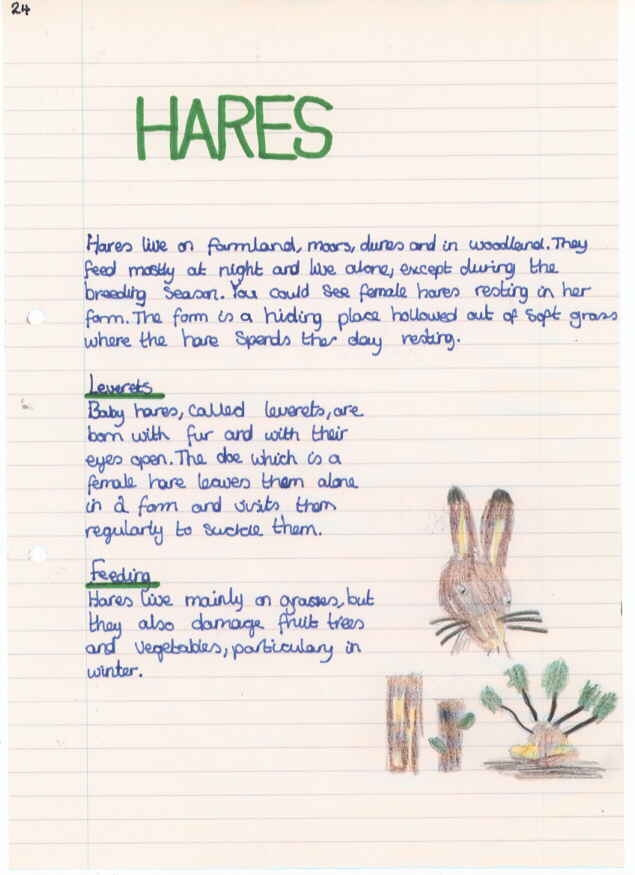 24
HARES
Hares live on farmland, moors, dunes and in woodland. They
feed mostly at night and live alone, except during the
breeding season. You could see female hares resting in her
form. The form is a hiding place hollowed out of soft grass
where the hare spends ther day resting.
Leverets
Baby hares, called leverets, are
born with fur and with their
eyes open. The doe which is a
female hare leaves them alone
in a form and visits them
regularly to suckle them.
Feeding
Hares live mainly on grasses, but
they also damage fruit trees
and vegetables, particulary in
winter.